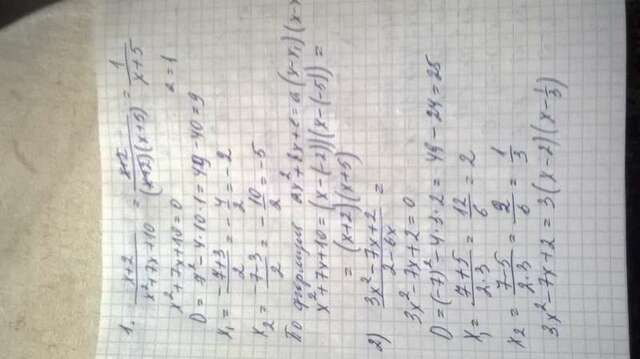 1. (x+2)/(x²+7x+10) = (x+2)/((x+2)(x+5)) = 1/(x+5)
x²+7x+10=0 a=1
D = 7²-4·10·1=49-40=9
x₁ = (-7+3)/2 = -4/2 = -2
x₂ = (-7-3)/2 = -10/2 = -5
По формуле ax²+bx+c=a(x-x₁)(x-x
x²+7x+10=(x-(-2))(x-(-5))=
=(x+2)(x+5)
2) (3x²-7x+2)/(2-6x) =
3x²-7x+2=0
D=(-7)²-4·3·2=49-24=25
x₁ = (7+5)/(2·3) = 12/6 = 2
x₂ = (7-5)/(2·3) = 2/6 = 1/3
3x²-7x+2=3(x-2)(x-1/3)